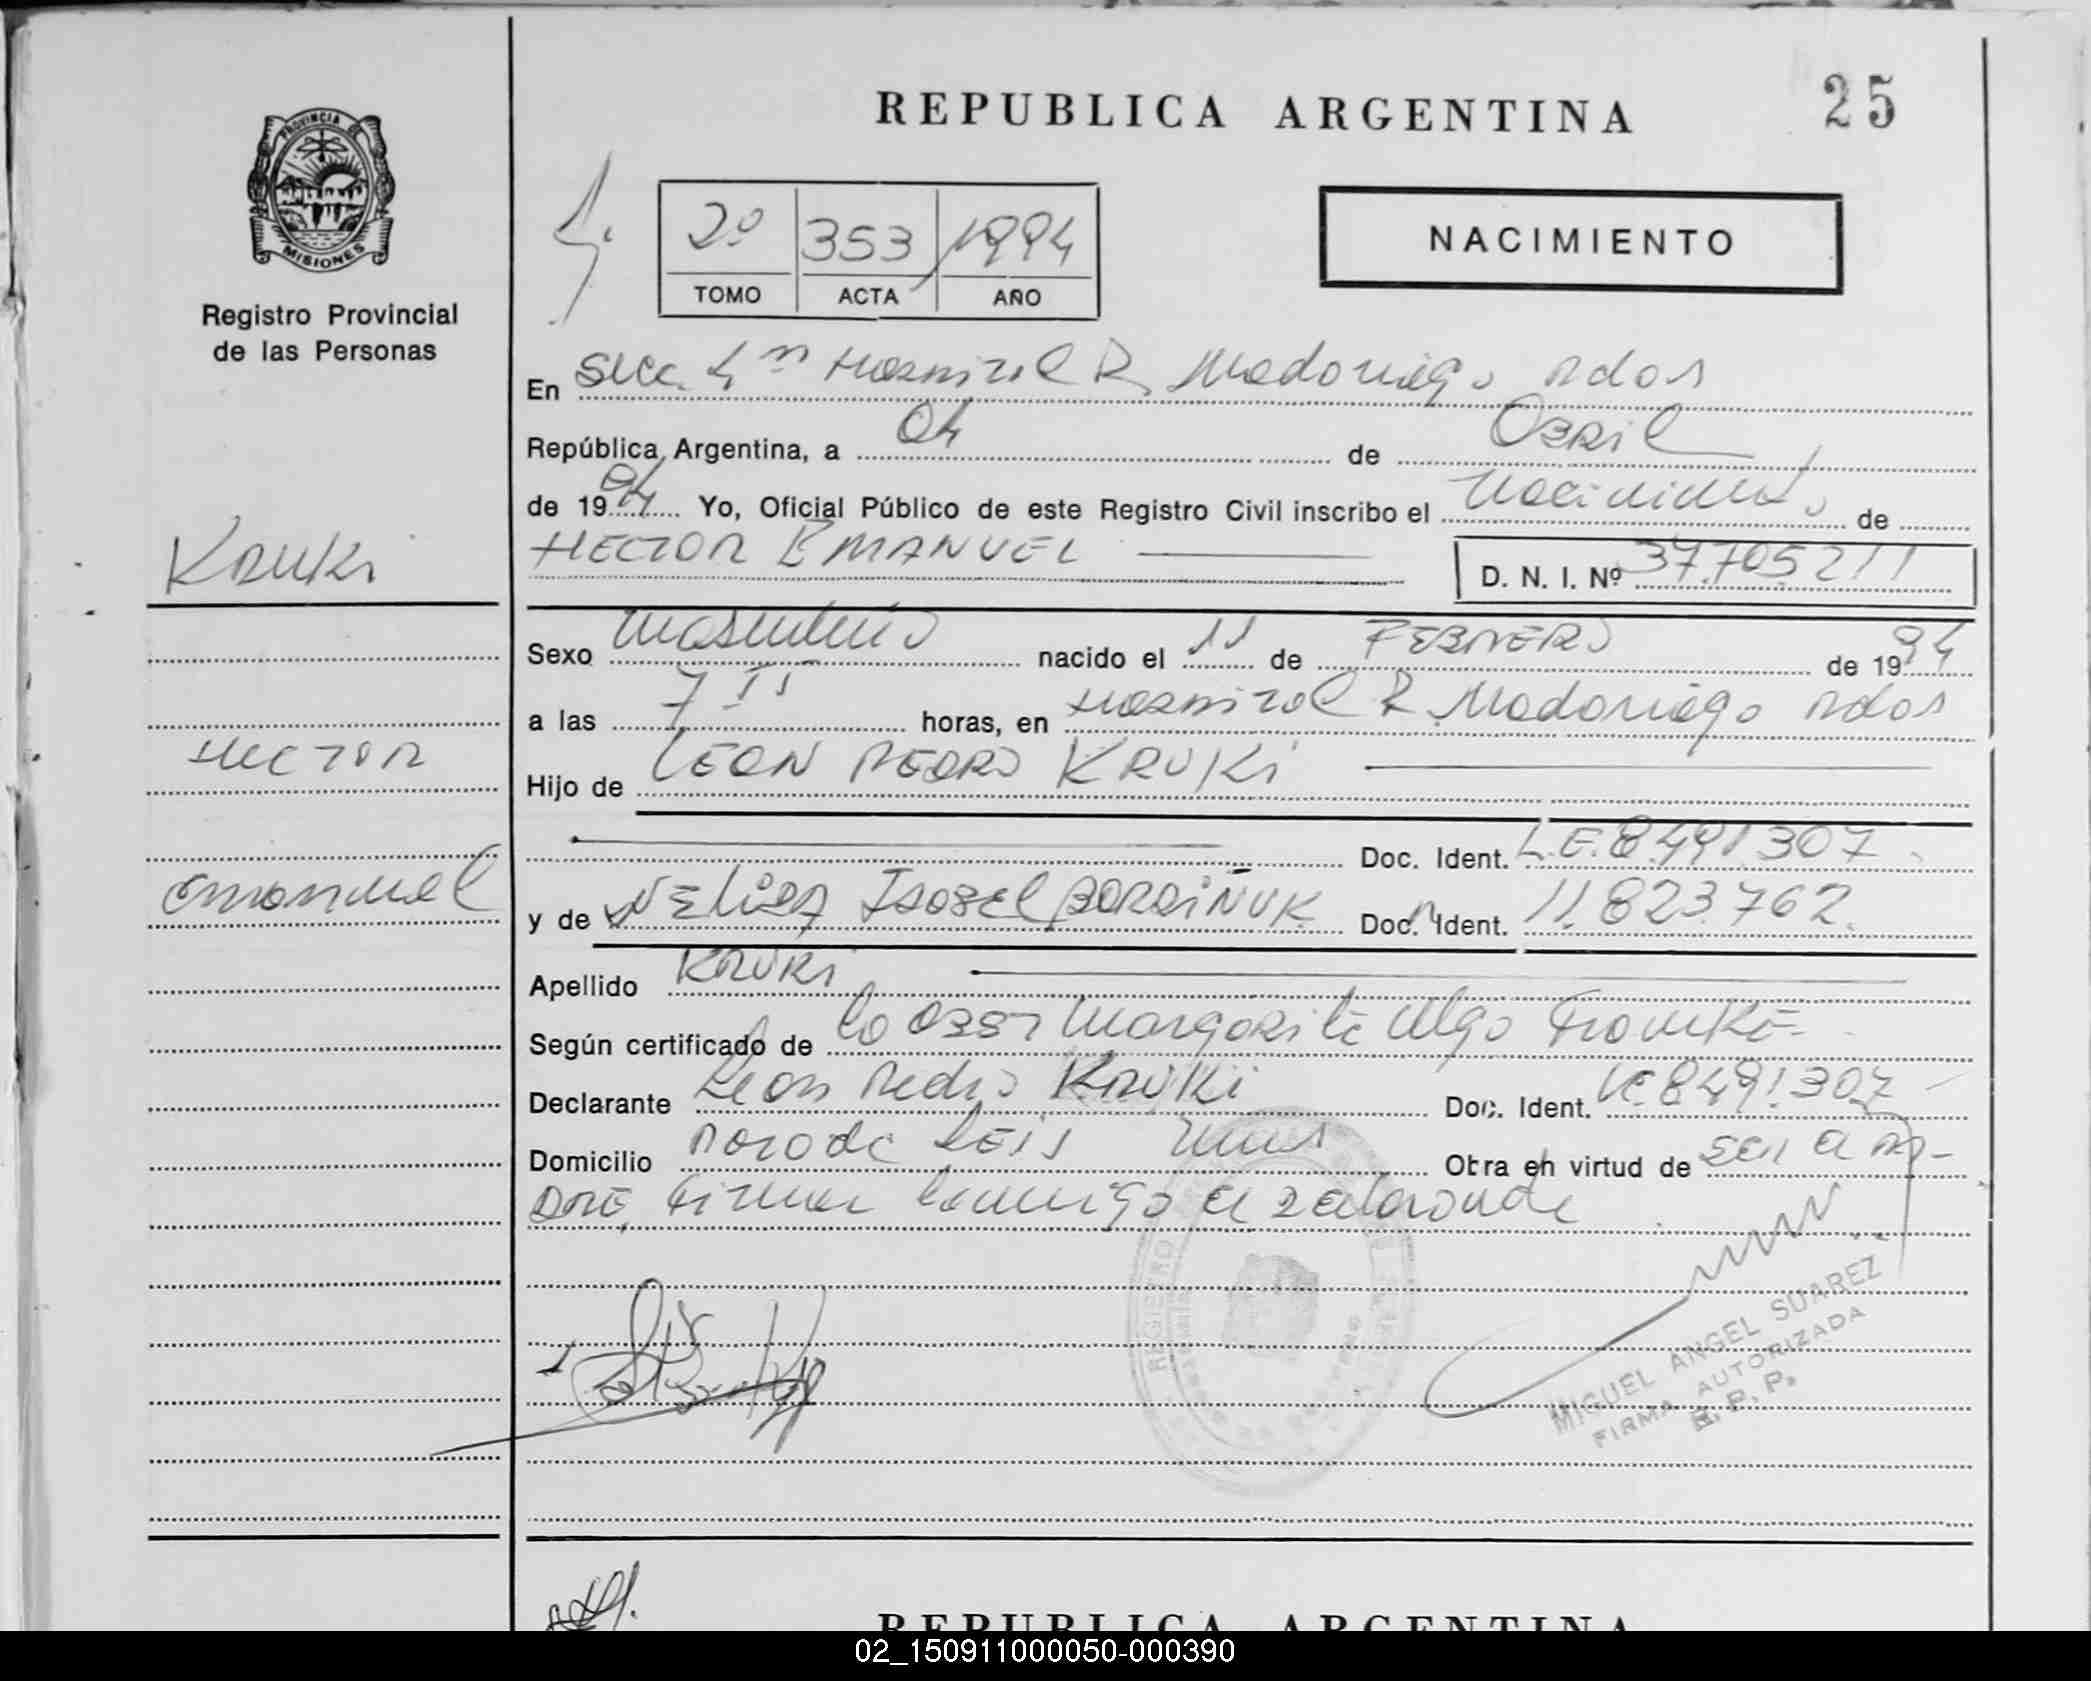 25
REPUBLICA ARGENTINA
PROVINCIA DE
MISIONES
Registro Provincial
de las Personas
2º 353 1994
TOMO ACTA AÑO
NACIMIENTO
En Secc. Hospital R. Madariaga Pdas
República Argentina, a 04 de Abril
de 1994 Yo, Oficial Público de este Registro Civil inscribo el Nacimiento de
Kruki
HECTOR EMANUEL
D. N. I. Nº 37.705.211
Sexo Masculino nacido el 11 de FEBRERO de 1994
a las 7 15 horas, en Hospital R. Madariaga Pdas
HECTOR
Hijo de LEON PEDRO KRUKI
Doc. Ident. L.E. 8.491.307
Emanuel
y de NELIDA ISABEL Doc. Ident. 11.823.762
Apellido KRUKI
Según certificado de la Obst Margarita Olga Franke
Declarante Leon Pedro KRUKI Doc. Ident. LE 8.491.307
Domicilio Parada Leis Mnes Obra en virtud de ser el PA-
DRE, Firma conmigo el declarante
REGISTRO
MIGUEL ANGEL SUAREZ
FIRMA AUTORIZADA
R. P. P.
REPUBLICA ARGENTINA
02_150911000050-000390